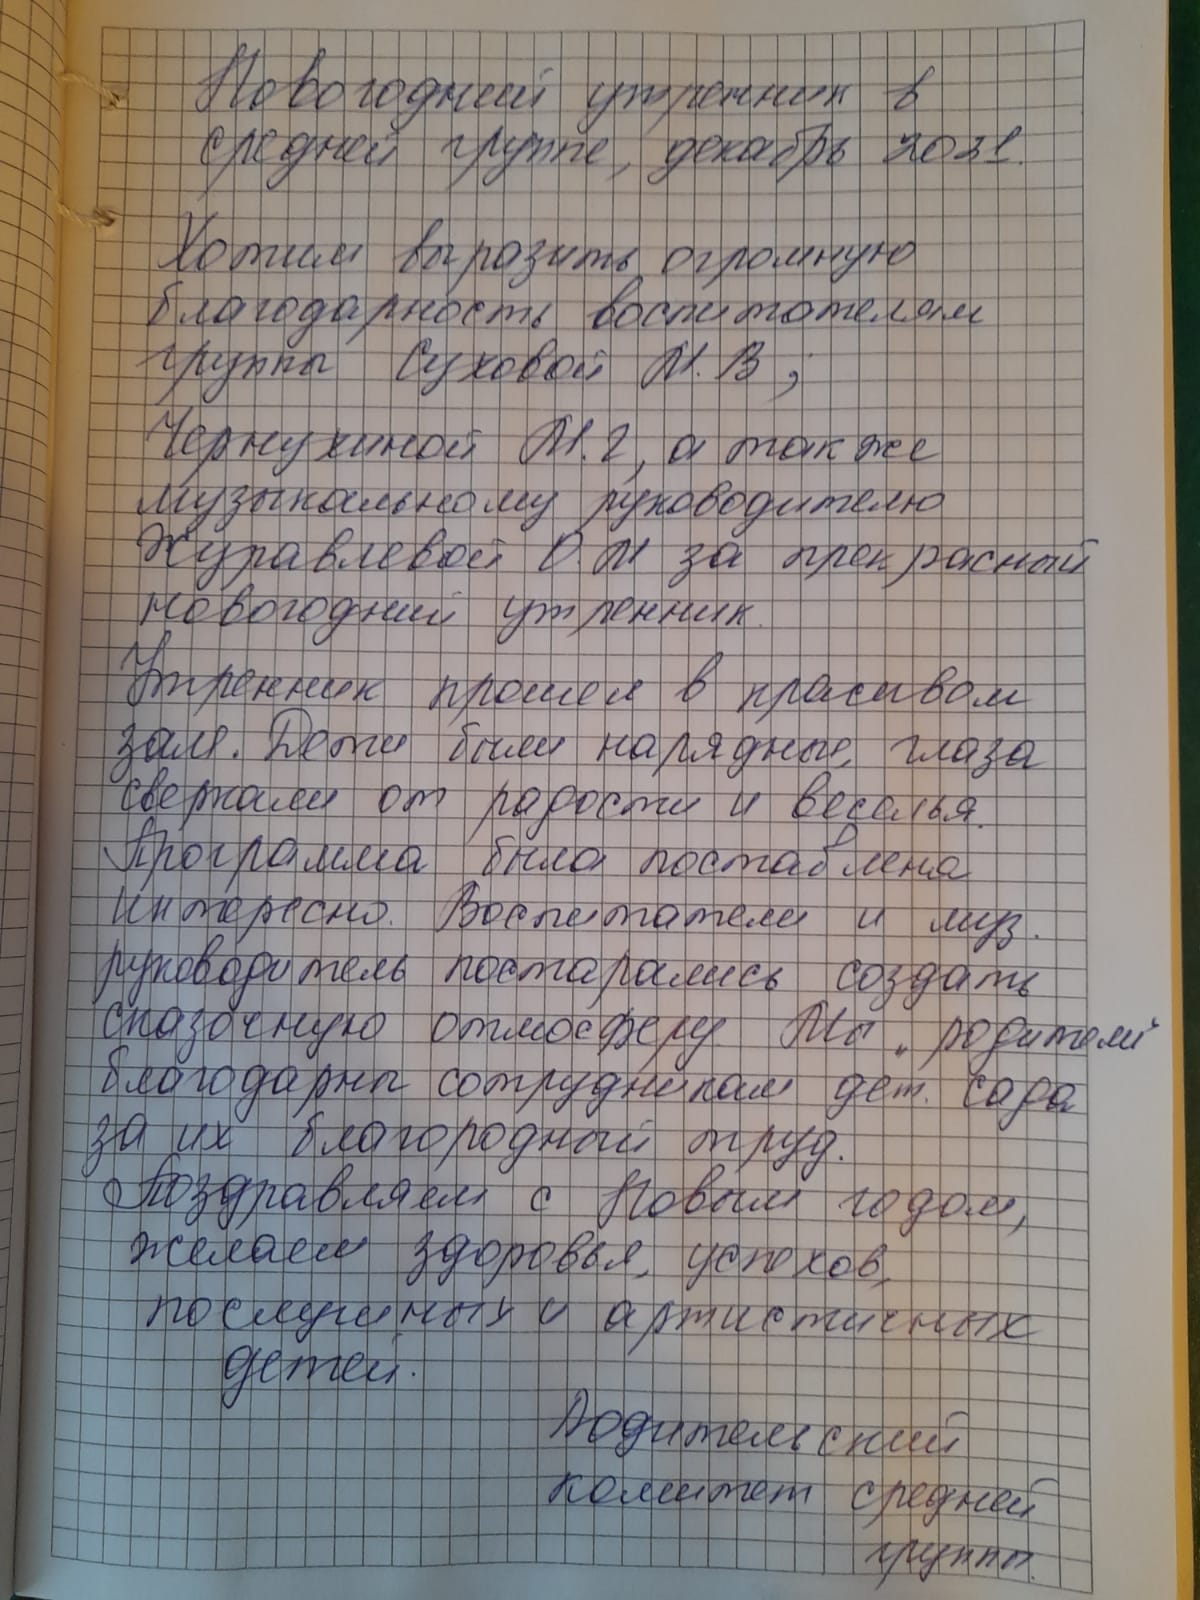 Новогодний утренник в
средней группе, декабрь 2021.
Хотим выразить огромную
благодарность воспитателям
группы Суховой М.В,
Чернухиной М.Г, а также
музыкальному руководителю
Журавлевой О.М за прекрасный
новогодний утренник.
Утренник прошел в красивом
зале. Дети были нарядные, глаза
сверкали от радости и веселья.
Программа была поставлена
интересно. Воспитатели и муз.
руководитель постарались создать
сказочную атмосферу. Мы, родители
благодарны сотрудникам дет. сада
за их благородный труд.
Поздравляем с Новым годом,
желаем здоровья, успехов,
послушных и артистичных
детей.
Родительский
комитет средней
группы.